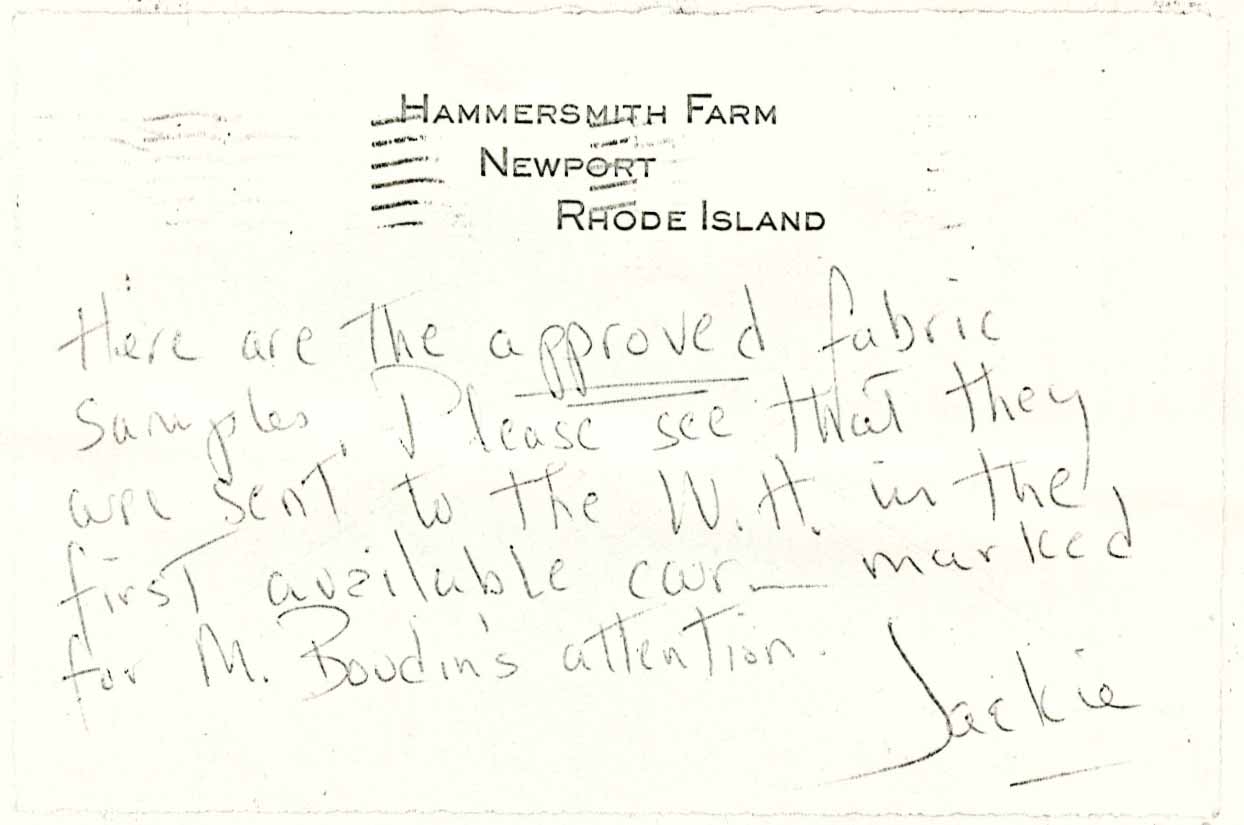 HAMMERSMITH FARM
NEWPORT
RHODE ISLAND
Here are the approved fabric
samples. Please see that they
are sent to the W.H. in the
first available car — marked
for M. Boudin's attention.
Jackie